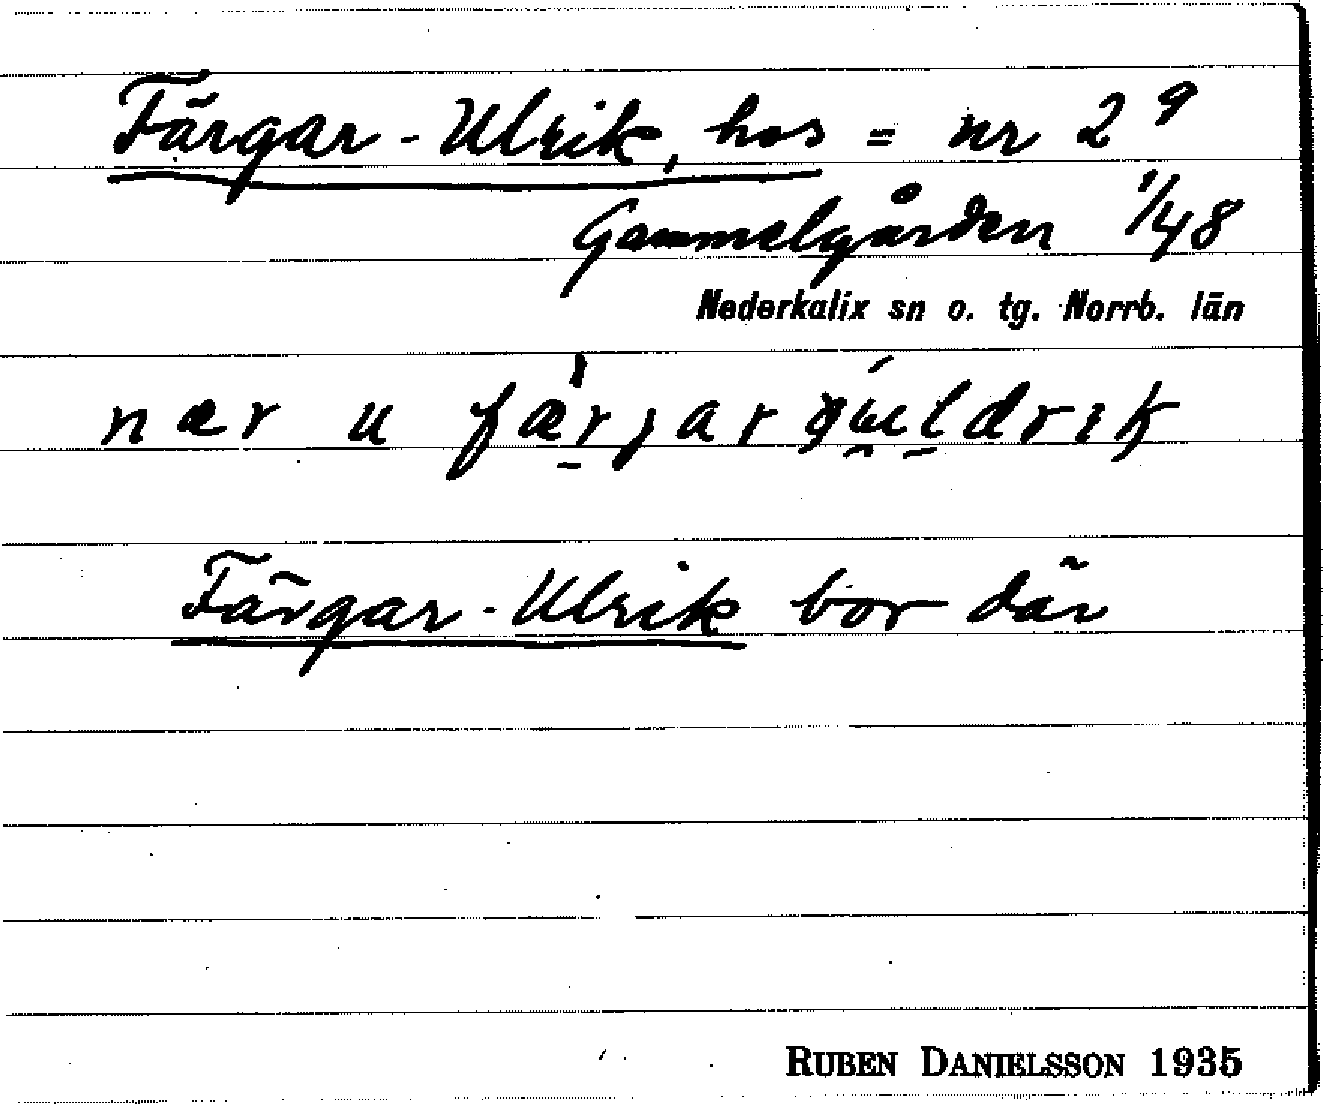 Färgar-Ulrik, hos = nr 2⁹
Gammelgården 1/48
Nederkalix sn o. tg. Norrb. län
nær u færjar
Färgar-Ulrik bor där
RUBEN DANIELSSON 1935